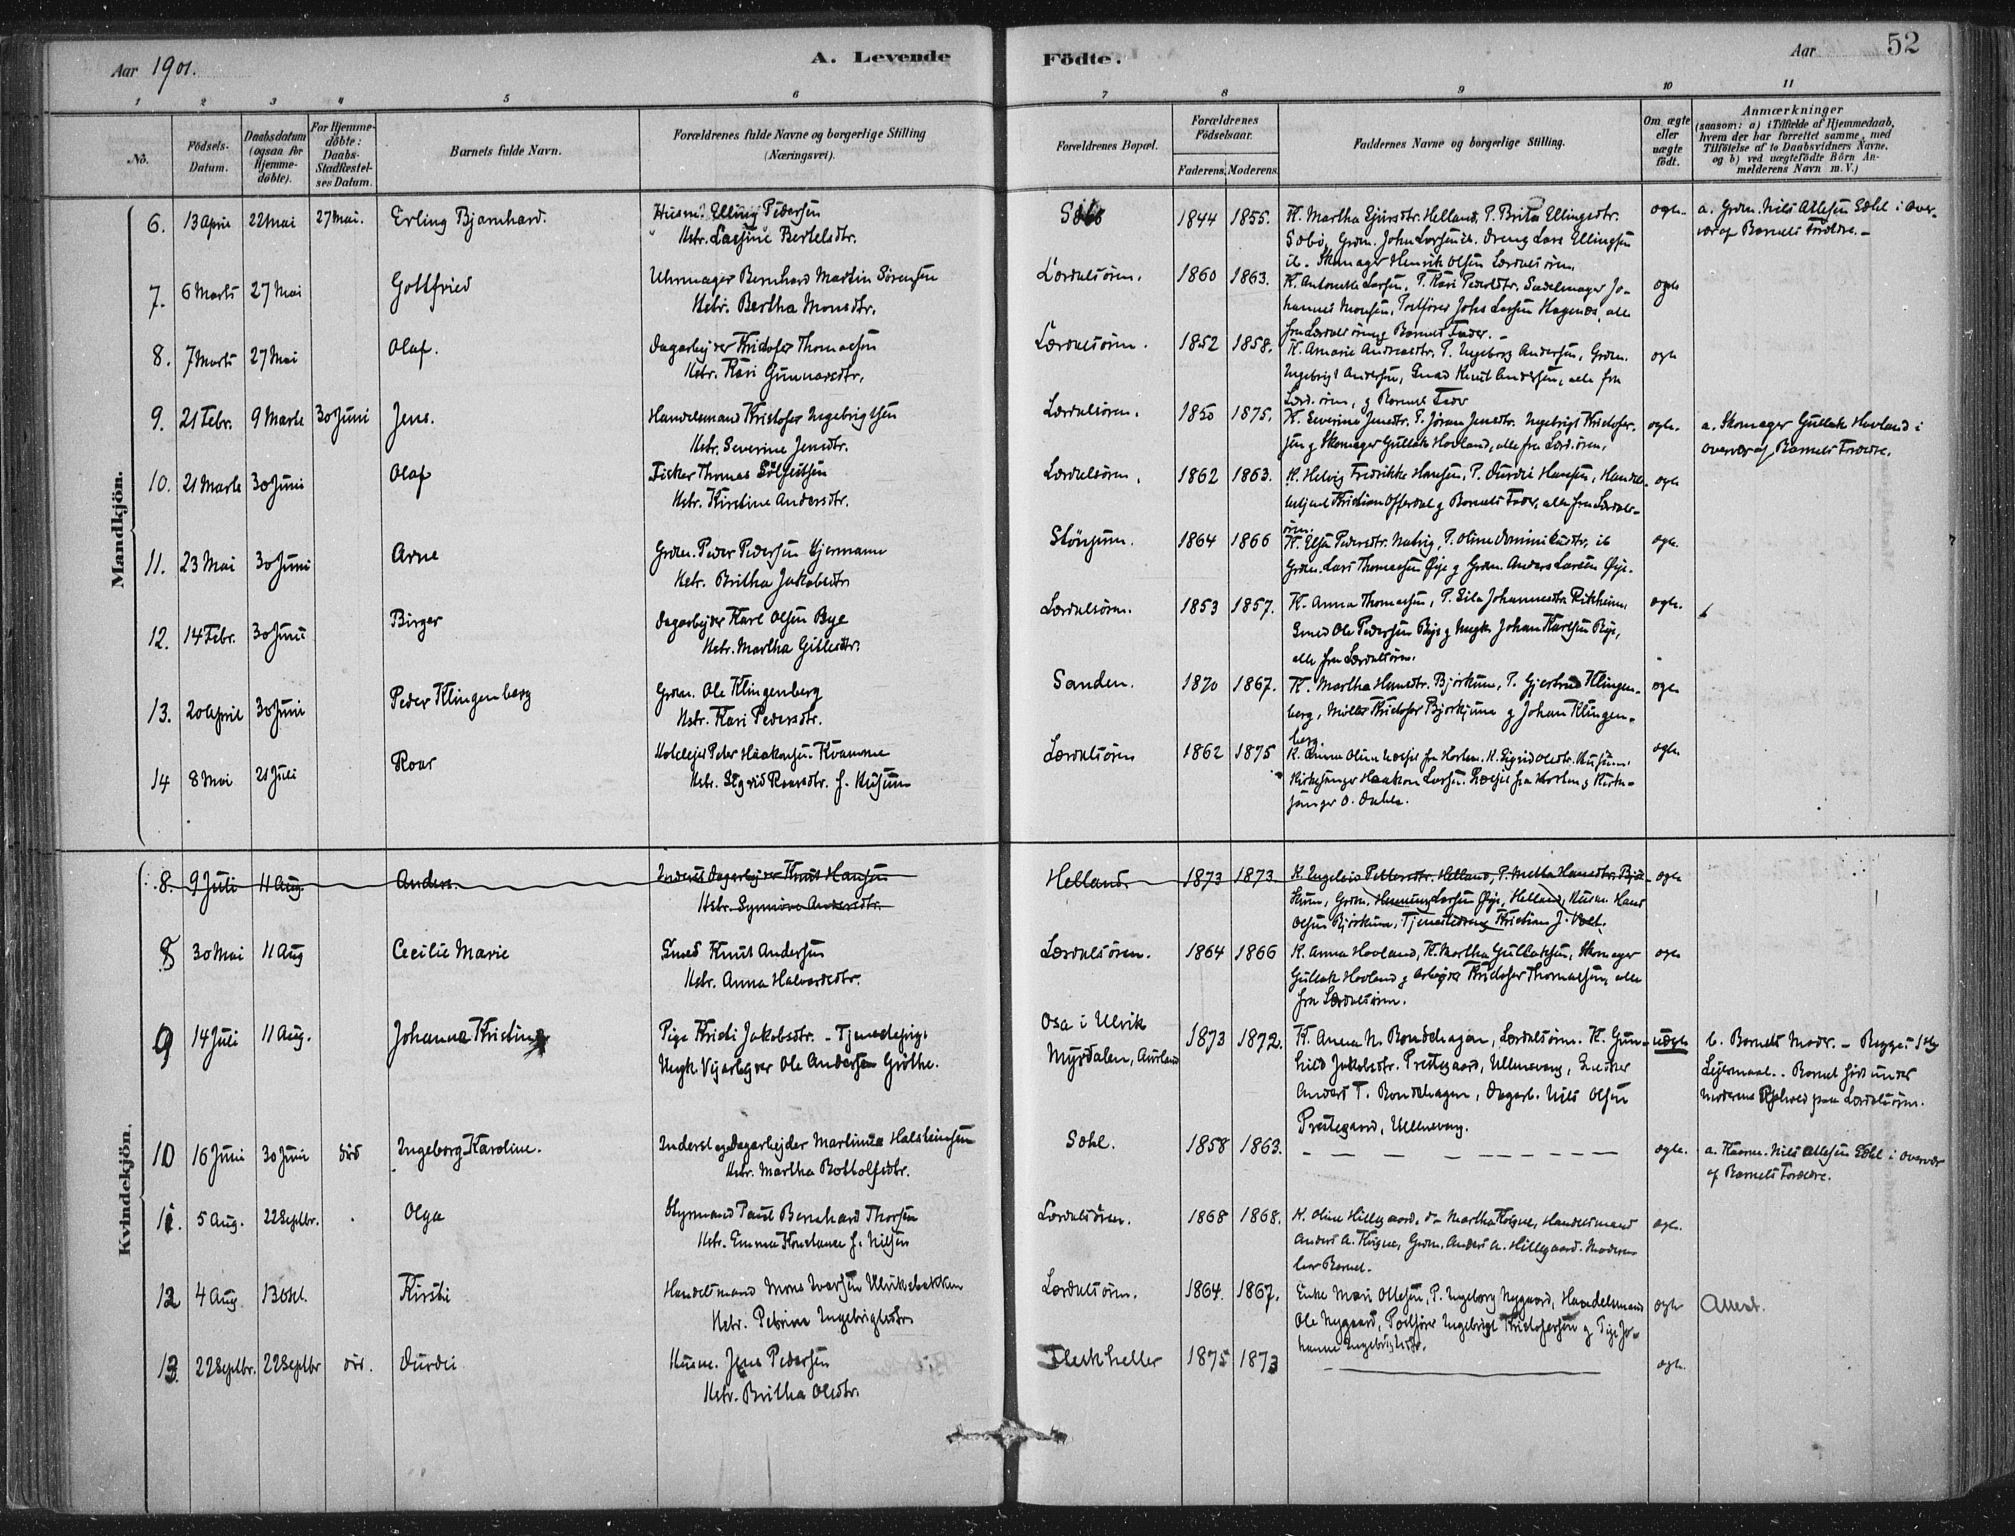 Aar 1901.
A. Levende
Födte.
Aar
52
1 2 3 4 5 6 7 8 9 10 11
No.
Födsels-
Datum.
Daabsdatum
(ogsaa for
Hjemme-
döbte).
For Hjemme-
döbte:
Daabs-
Stadfæstel-
ses Datum.
Barnets fulde Navn.
Forældrenes fulde Navne og borgerlige Stilling
(Næringsvei).
Forældrenes Bopæl.
Forældrenes
Födselsaar.
Faderens. Moderens.
Faddernes Navne og borgerlige Stilling.
Om ægte
eller
uægte
födt.
Anmærkninger
(saasom: a) i Tilfælde af Hjemmedaab,
hvem der har forrettet samme, med
Tilföielse af to Daabsvidners Navne,
og b) ved uægtefödte Börn An-
melderens Navn m. V.)
Mandkjön.
6. 13 April 22 Mai 27 Mai. Erling Bjarnhard.
Husm. Elling Pedersen
Hstr. Bertelsdtr.
1844 1855.
K. Martha Helland, P. Brita Ellingsdtr.
Dreng Lars Ellingsen
Skomager Henrik Olsen Lærdalsören.
ægte.
a. Grdm. Nils Ottesen i Over-
vær af Barnets Forældre.
7. 6 Marts 27 Mai Gottfried
Uhrmager Bernhard Martin Sörensen
Hstr. Bertha Monsdtr.
Lærdalsören. 1860 1863.
K. Antonette Larsen, P. Kari Pedersdtr. Sadelmager Jo-
hannes Monsen, Postförer Johs Larsen Hagenæs, alle
fra Lærdalsören og Barnets Fader.
ægte
8. 7 Marts 27 Mai Olaf.
Dagarbejder Kristofer Thomassen
Hstr. Kari Gunnarsdtr.
Lærdalsören. 1852 1858.
K. Amarie Andreasdtr. P. Ingeborg Andersen, Grdm.
Ingebrigt Andersen, Smed Knut Andersen, alle fra
Lærd.ören, og Barnets Fader
ægte
9. 21 Febr. 9 Marts 30 Juni Jens.
Handelsmand Kristofer Ingebrigtsen
Hstr. Severine Jensdtr.
Lærdalsören. 1850 1875.
K. Severine Jensdtr. P. Jöran Jensdtr. Ingebrigt Kristofer-
sen og Skomager Gullak Hovland, alle fra Lærd.ören.
ægte.
a. Skomager Gullak Hovland i
Overvær af Barnets Forældre.
10. 21 Marts 30 Juni Olaf
Fisker Thomas Sölfestsen
Hstr. Kirstine Andersdtr.
Lærdalsören. 1862 1863.
K. Helvig Fredrikke Hansen, P. Durdei Hansen, Handels-
betjent Kristian Offerdal og Barnets Fader, alle fra Lærdals-
ören.
ægte
11. 23 Mai 30 Juni Arne
Grdm. Peder Pedersen Hjermann
Hstr. Britha Jakobsdtr.
Stönjum. 1864 1866
K. Elsa Pedersdtr. P. Oline
Grdm. Lars Thomassen Öje og Grdm. Anders Larsen Öje.
ægte.
12. 14 Febr. 30 Juni Birger
Dagarbejder Karl Olsen Bye
Hstr. Martha Gillesdtr.
Lærdalsören. 1853 1857.
K. Anna Thomassen, P. Sila Johannesdtr.
Smed Ole Pedersen Bye og Ungk. Johan Karlsen Bye,
alle fra Lærdalsören.
ægte.
13. 20 April 30 Juni Peder Klingenberg
Grdm. Ole Klingenberg
Hstr. Kari Pedersdtr.
Sanden. 1870 1867.
K. Martha Hansdtr. Björkum, P. Gjertrud Klingen-
berg, Möller Kristofer Björkum og Johan Klingen-
berg.
ægte
14 8 Mai 21 Juli Roar
Hotelejer Peter Haakonsen Kvamme
Hstr. Sigrid Roarsdtr. f. Husum
Lærdalsören 1862 1875
K. Sigrid Olsdtr. Husum,
Kirkesanger Haakon Larsen
sanger O. Dahle.
ægte
Kvindekjön.
8. 9 Juli 11 Aug. Anders.
Inderst Dagarbejder Knut Hansen
Hstr. Synneva Andersdtr.
Helland. 1873 1873
K. Engelais Pettersdtr. Helland, P. Metha Hansdtr. Björ-
kum, Grdm. Henning Larsen Öje, Helland, Husm. Hans
Olsen Björkum, Tjenestedreng Kristian J. Voll.
ægte
8 30 Mai 11 Aug Cecilie Marie
Smed Knut Andersen
Hstr. Anna Halvardsdtr.
Lærdalsören. 1864 1866
K. Anna Hovland, K. Martha Gullaksen, Skomager
Gullak Hovland og Arbejder Kristofer Thomassen, alle
fra Lærdalsören.
ægte
9 14 Juli 11 Aug. Johanna Kristine
Pige Kristi Jakobsdtr. - Tjenestepige
Ungk. Vejarbejder Ole Andersen Gröthe.
Osa i Ulvik
Myrdalen, Aurland
1873 1872.
K. Anna N. Bondehagen, Lærdalsören. K. Gun-
hild Jakobsdtr. Prestegaard, Ullensvang, Snedker
Anders T. Bondehagen, Dagarb. Nils Olsen
Prestegaard, Ullensvang.
uægte
b. Barnets Moder. - Begges 1ste
Lejermaal. Barnet född under
Moderens Ophold paa Lærdalsören.
10 16 Juni 30 Juni död Ingeborg Karoline.
Inderst og Dagarbejder Martinus Halsteinsen
Hstr. Martha Bottolfsdtr.
1858 1863.
ægte.
a. Nils Ottesen i Overvær
af Barnets Forældre.
11. 5 Aug. 22 Septbr. Olga
Styrmand Paul Bernhard Thorsen
Hstr. Emma Konstance f. Nilsen
Lærdalsören. 1868 1868.
K. Oline Hillegaard, Martha Handelsmand
Anders A. Grdm. Anders A. Hillegaard. Moderen
bar Barnet.
ægte.
12 4 Aug 13 Okt. Kirsti
Handelsmand Mons Ivarsen Ulriksbakken
Hstr. Petrine Ingebrigtsdtr.
Lærdalsören. 1864. 1867.
Enke Mari Ottesen, P. Ingeborg Nygaard, Handelsmand
Ole Nygaard, Postförer Ingebrigt Kristofersen og Pige Jo-
hanne Ingebrigtsdtr.
ægte
Attest.
13. 22 Septbr. 22 Septbr död. Durdei
Husm. Jens Pedersen
Hstr. Britha Olsdtr.
1875 1873
ægte.